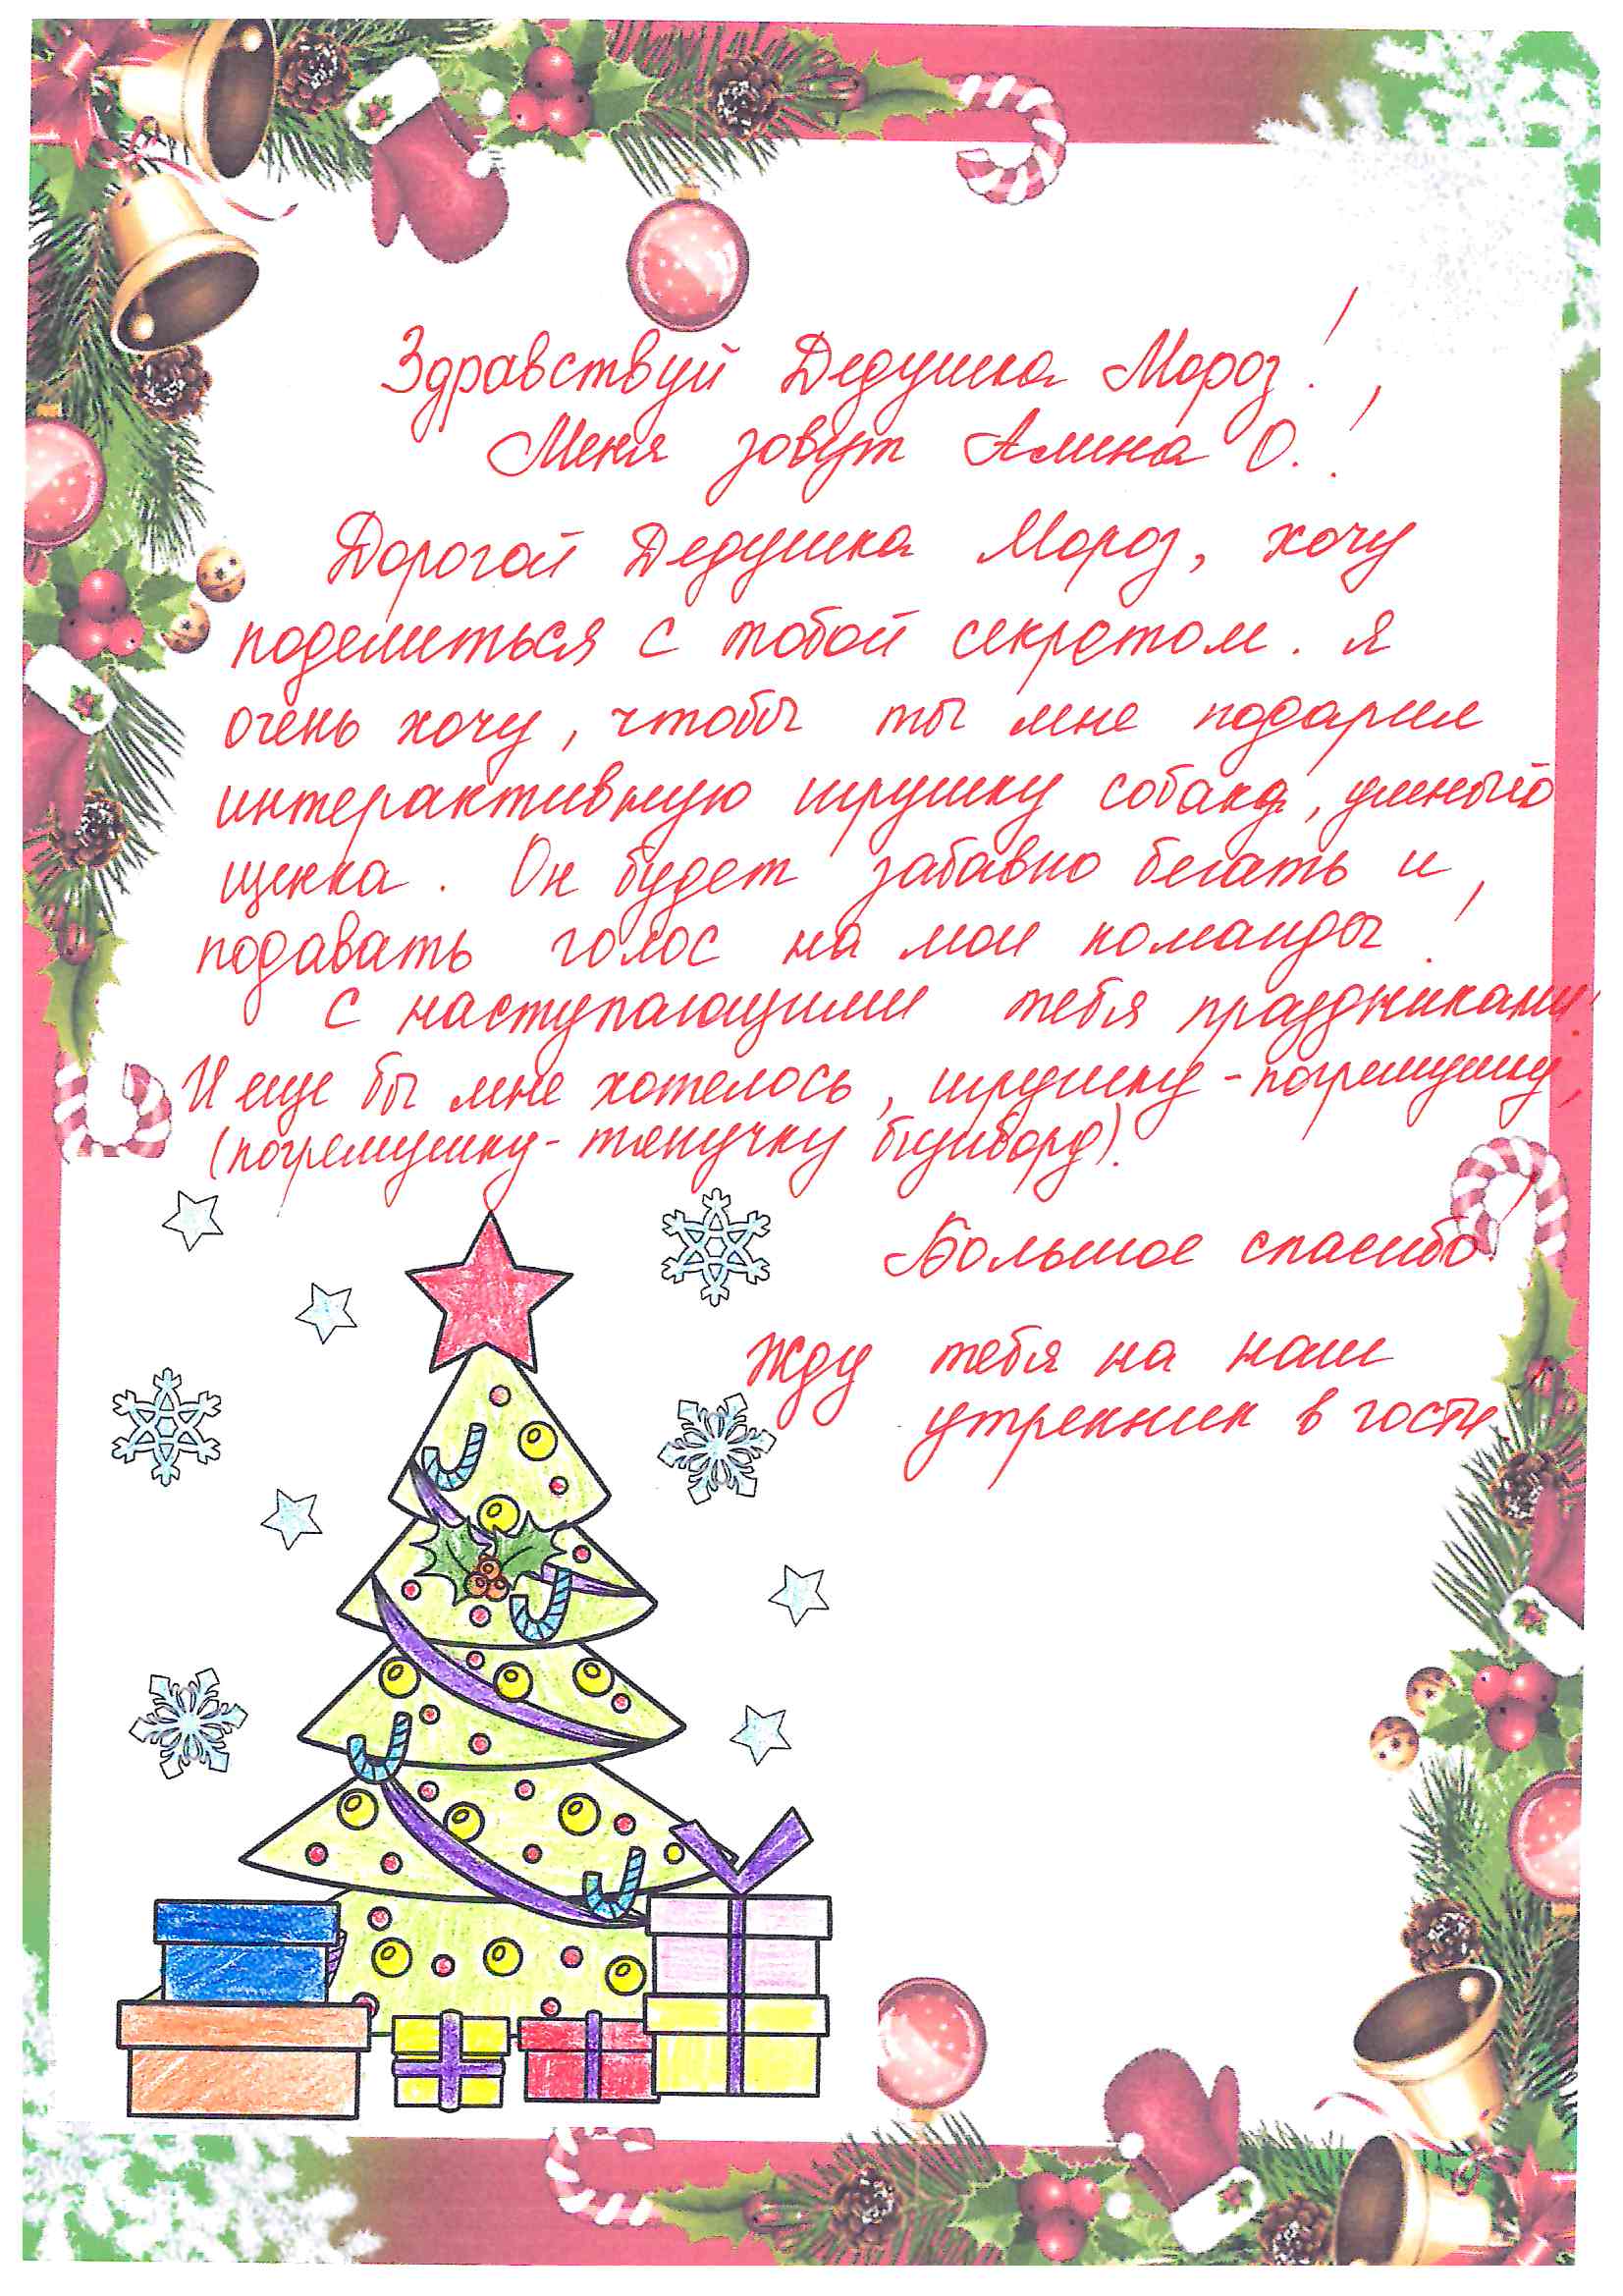 Здравствуй Дедушка Мороз!
Меня зовут Алина О.!
Дорогой Дедушка Мороз, хочу
поделиться с тобой секретом. Я
очень хочу, чтобы ты мне подарил
интерактивную игрушку собака, умный
щенка. Он будет забавно бегать и
подавать голос на мои команды!
С наступающими тебя праздниками!
И еще бы мне хотелось, игрушку-погремушку,
(погремушку-тянучку бизиборд).
Большое спасибо!
Жду тебя на наш
утренник в гости.